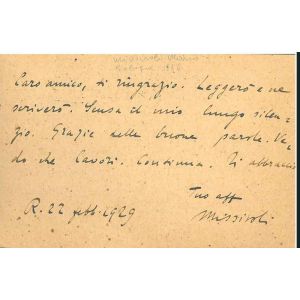 Caro amico, ti ringrazio. Leggerò e ne
scriverò. Scusa il mio lungo silen-
zio. Grazie delle buone parole. Ve-
do che lavori. Continua. Ti abbraccio
Tuo aff
Missiroli
R. 22 febb. 1929